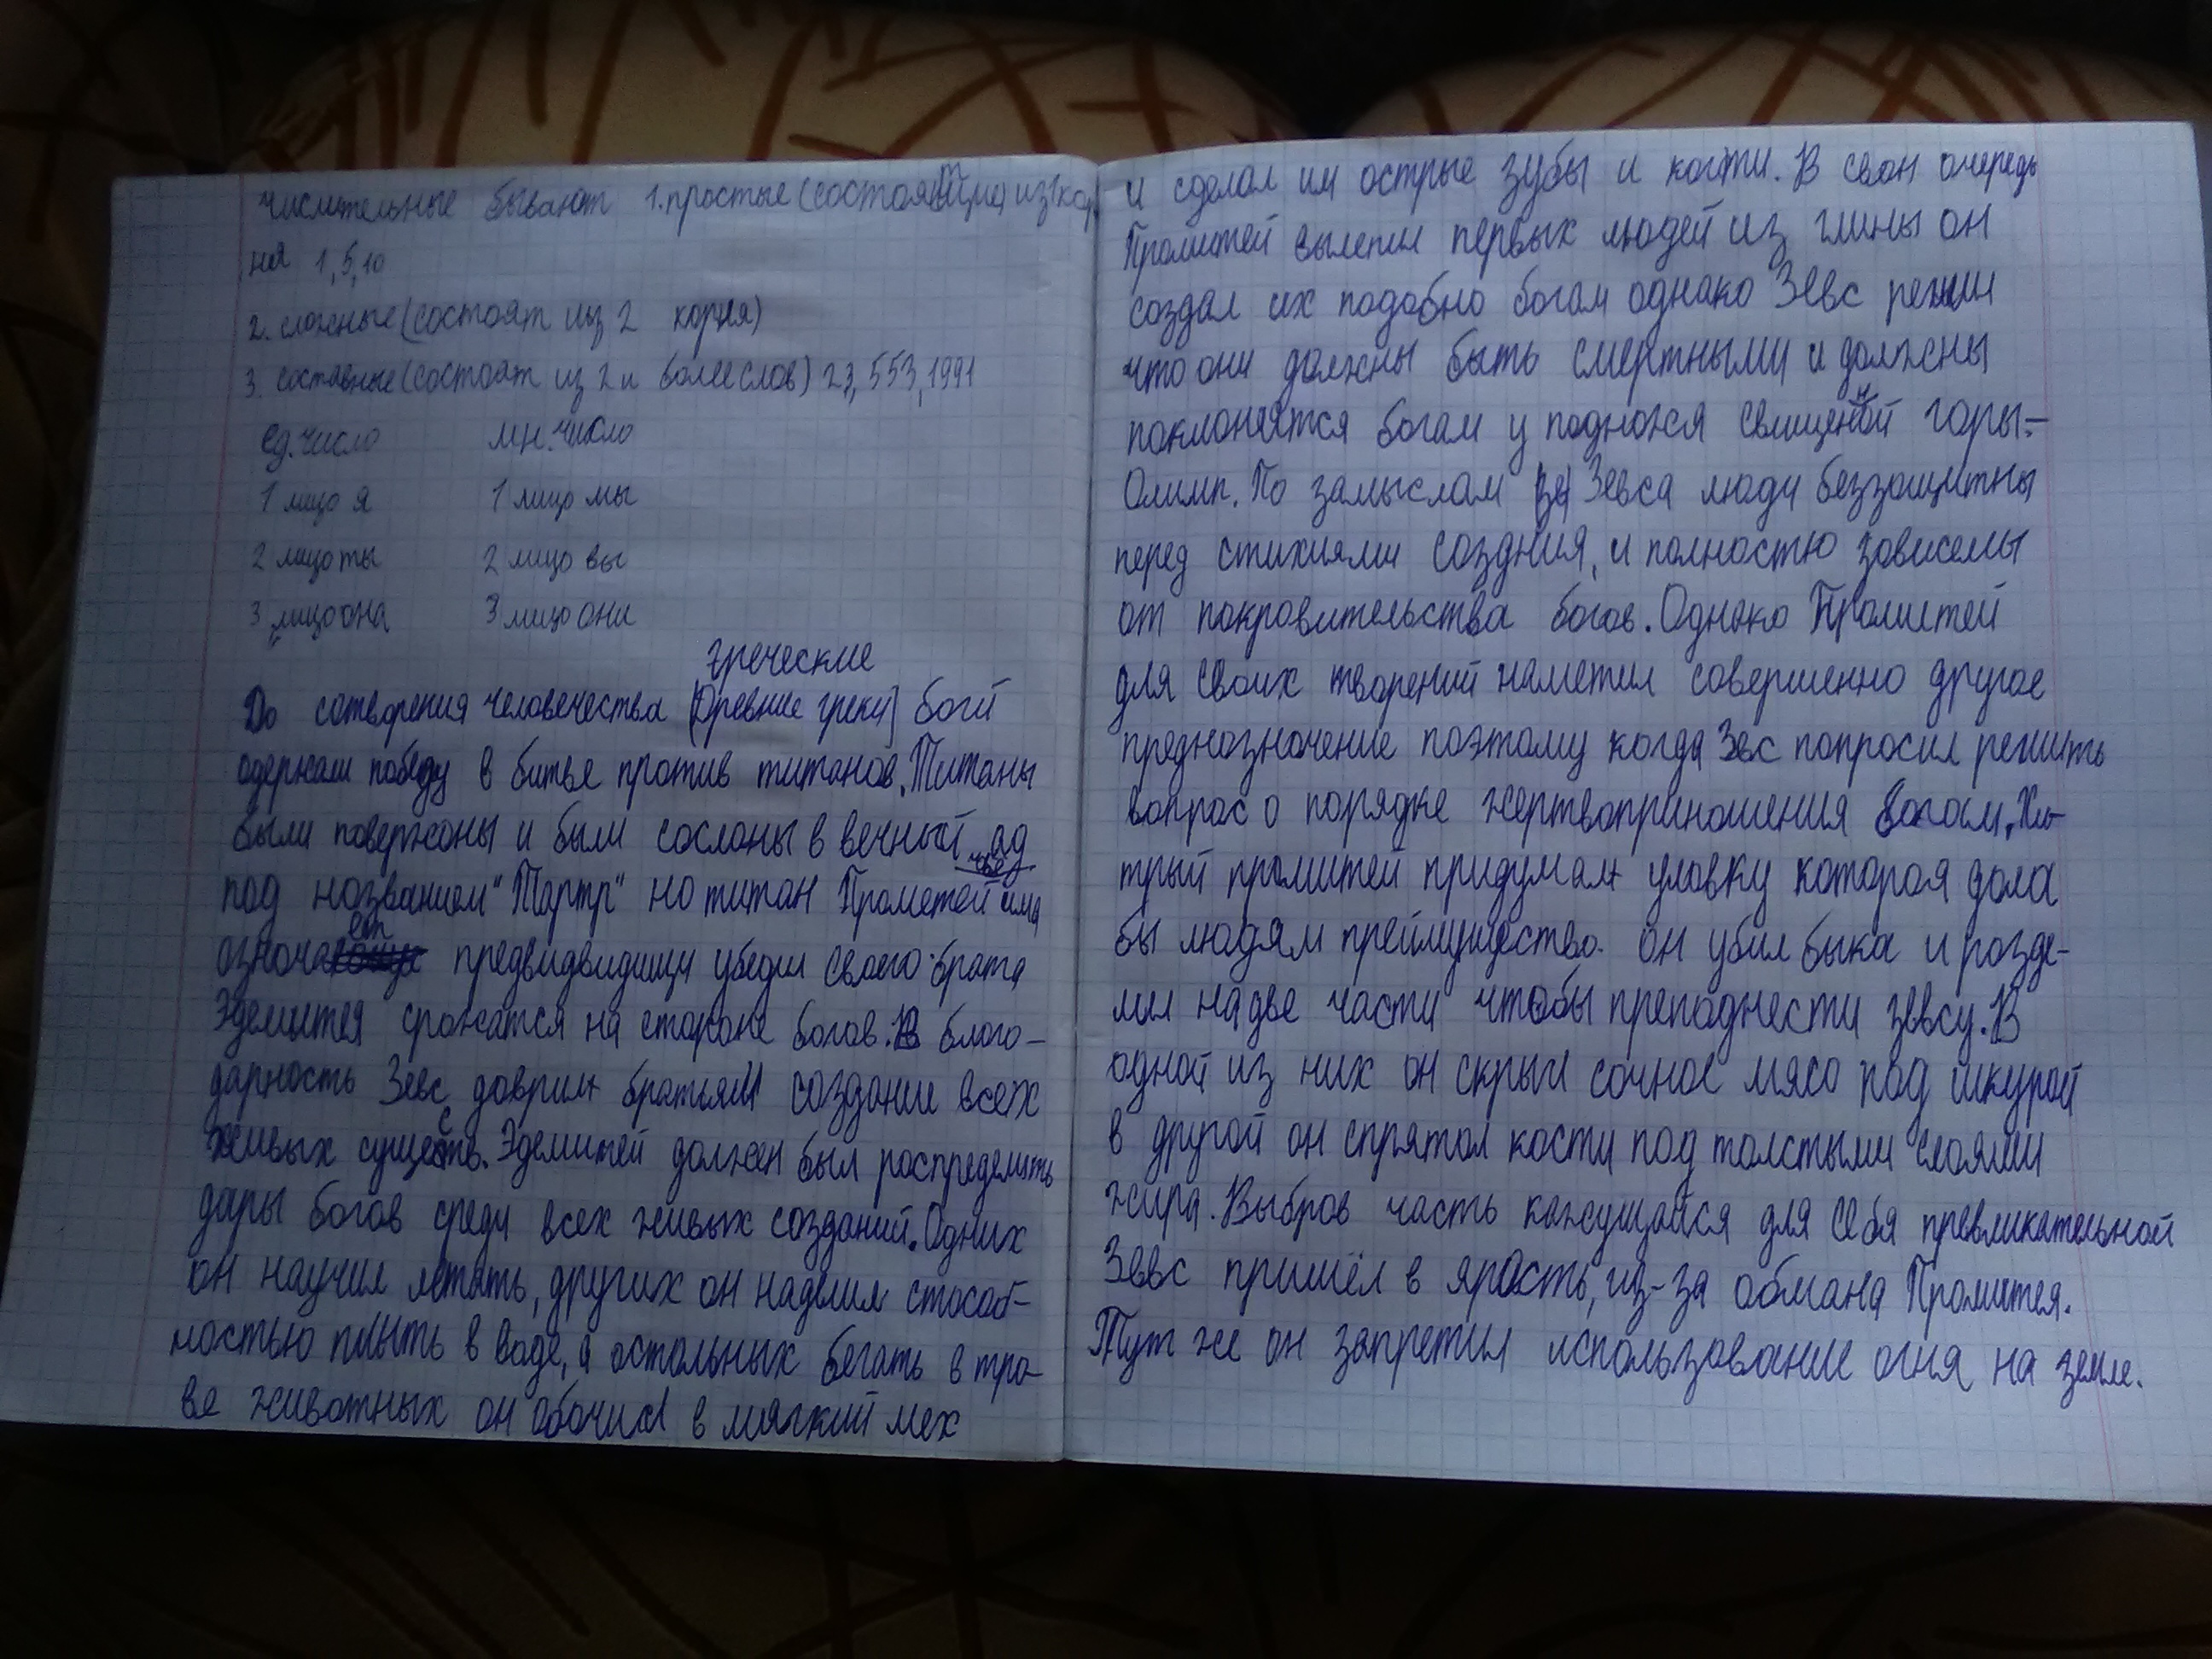 числительные бывают 1. простые (состоящие из 1 кор
ня 1, 5, 10
2. сложные (состоят из 2 корня)
3. составные (состоят из 2 и более слов) 23, 553, 1991
ед. число мн. число
1 лицо я 1 лицо мы
2 лицо ты 2 лицо вы
3 лицо она 3 лицо они
греческие
До сотворения человечества [Древние греки] боги
одержали победу в битве против титанов. Титаны
были повержоны и были сосланы в вечный ад
под названием "Тартр" но титан Прометей чьё имя
означает предвидвидищи убедил своего брата
Эдемитея сражатся на стороне богов. В благо-
дарность Зевс даврил братьям создание всех
живых существ. Эдемитей должен был роспределить
дары богов среди всех живых созданий. Одних
он научил летать, других он наделил способ-
ностью плыть в воде, а остольных бегать в тра-
ве животных он обочил в мягкий мех
и сделал им острые зубы и когти. В свои очередь
Промитей вылепил первых людей из глины он
создал их подобно богам однако Зевс решил
что они должны быть смертными и должны
поклонятся богам у подножя свищеной горы-
Олимп. По замыслам Зевса люди беззащитны
перед стихиями создния, и полностю зависемы
от покровительства богов. Однако Промитей
для своих творений наметил совершенно другое
предназначение поэтому когда Звс попросил решить
вопрос о порядке жертвоприношения богам, Хи-
трый промитей придумал уловку которая дала
бы людям преймущество. он убил быка и розде-
лил на две части чтобы преподнести зевсу. В
одной из них он скрыл сочное мясо под шкурой
в другой он спрятал кости под толстыми слоями
жира. Выбров часть кажущайся для себя превликательной
Зевс пришёл в ярость, из-за обмана Промитея.
Тут же он запретил использование огня на земле.